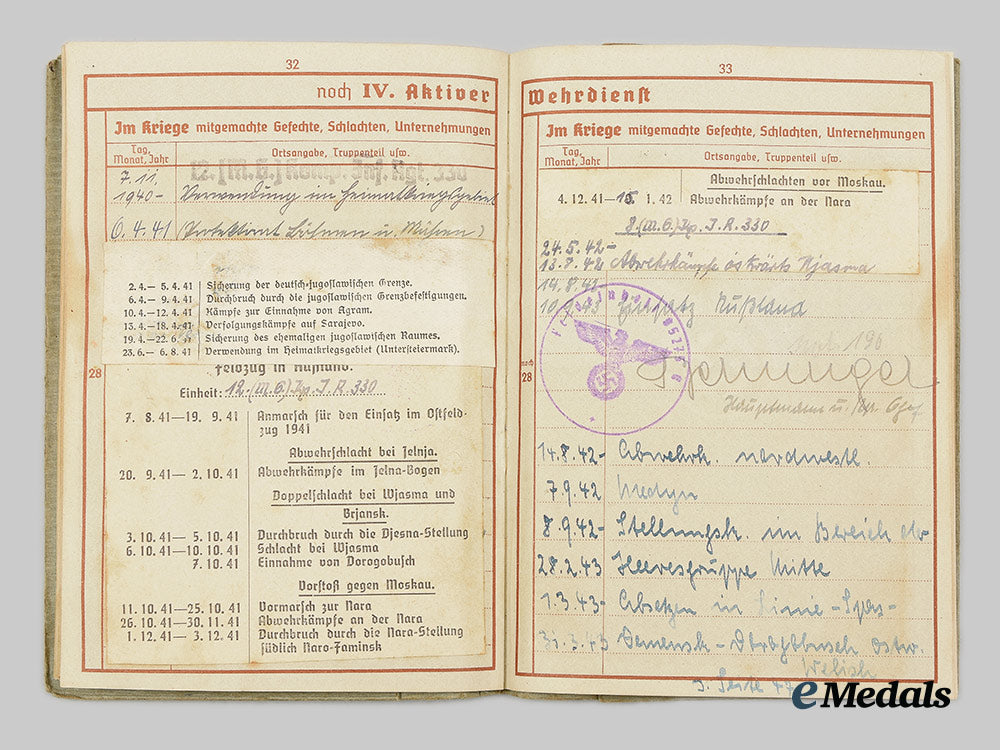 32
noch IV. Aktiver
Im Kriege mitgemachte Gefechte, Schlachten, Unternehmungen
Tag, Monat, Jahr
Ortsangabe, Truppenteil usw.
12. (M.G.) Komp. Inf. Rgt. 330
7.11. 1940- Verwendung im Heimatkriegsgebiet
6.4.41 (Protektorat Böhmen u. Mähren)
2.4.— 5.4.41 Sicherung der deutsch-jugoslawischen Grenze.
6.4.— 9.4.41 Durchbruch durch die jugoslawischen Grenzbefestigungen.
10.4.—12.4.41 Kämpfe zur Einnahme von Agram.
13.4.—18.4.41 Verfolgungskämpfe auf Sarajevo.
19.4.—22.6. Sicherung des ehemaligen jugoslawischen Raumes.
23.6.— 6.8.41 Verwendung im Heimatkriegsgebiet (Untersteiermark).
28
Feldzug in Rußland.
Einheit: 12.(M.G.) Kp. J.R. 330
7. 8.41—19. 9.41 Anmarsch für den Einsatz im Ostfeld-
zug 1941
Abwehrschlacht bei Jelnja.
20. 9.41— 2.10.41 Abwehrkämpfe im Jelna-Bogen
Doppelschlacht bei Wjasma und
Brjansk.
3.10.41— 5.10.41 Durchbruch durch die Djesna-Stellung
6.10.41—10.10.41 Schlacht bei Wjasma
7.10.41 Einnahme von Dorogobusch
Vorstoß gegen Moskau.
11.10.41—25.10.41 Vormarsch zur Nara
26.10.41—30.11.41 Abwehrkämpfe an der Nara
1.12.41— 3.12.41 Durchbruch durch die Nara-Stellung
südlich Naro-Faminsk
33
Wehrdienst
Im Kriege mitgemachte Gefechte, Schlachten, Unternehmungen
Tag, Monat, Jahr
Ortsangabe, Truppenteil usw.
Abwehrschlachten vor Moskau.
4.12.41—15.1.42 Abwehrkämpfe an der Nara
8.(M.G.) Kp. J.R. 330
24.5.42-
13.8.42 Abwehrkämpfe ostwärts Wjasma
14.8.41-
Einsatz Rußland
noch
28
Hauptmann u. Kp. Chef
14.8.42- Abwehrk. nordwestl.
7.9.42 Medyn
8.9.42- Stellungsk. im Bereich der
28.2.43 Heeresgruppe Mitte
1.3.43- Absetzen in Linie-Spas-
31.3.43 Demensk-Dorogobusch ostw.
Welish
s. Seite
eMedals